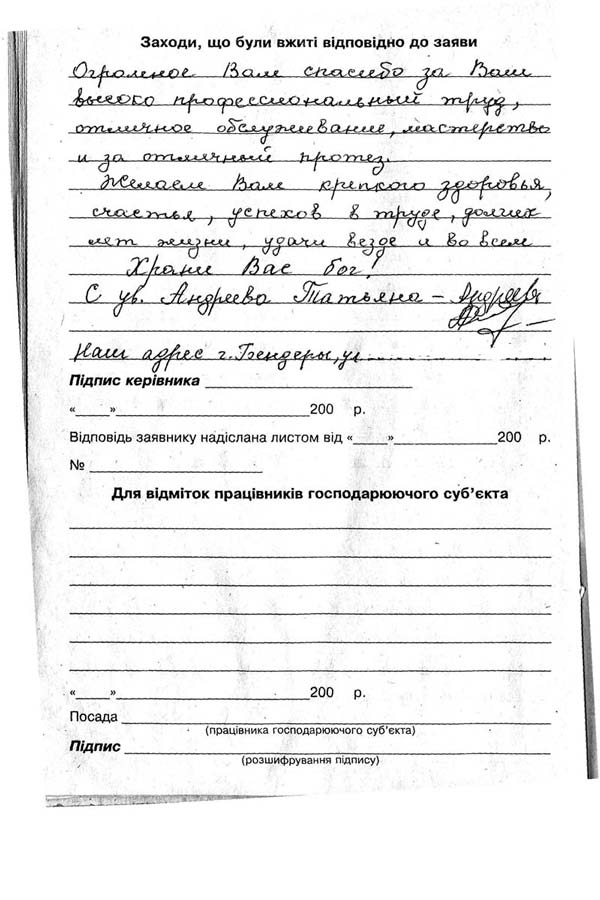 Заходи, що були вжиті відповідно до заяви
Огромное Вам спасибо за Ваш
высоко профессиональный труд,
отличное обслуживание, мастерство
и за отличный протез.
Желаем Вам крепкого здоровья,
счастья, успехов в труде, долгих
лет жизни, удачи везде и во всем
Храни Вас бог!
С ув. Андреева Татьяна – Андреева
Наш адрес г. Бендеры, ул
Підпис керівника
«____»____200 р.
Відповідь заявнику надіслана листом від «____»____200 р.
№
Для відміток працівників господарюючого суб’єкта
«____»____200 р.
Посада
(працівника господарюючого суб’єкта)
Підпис
(розшифрування підпису)